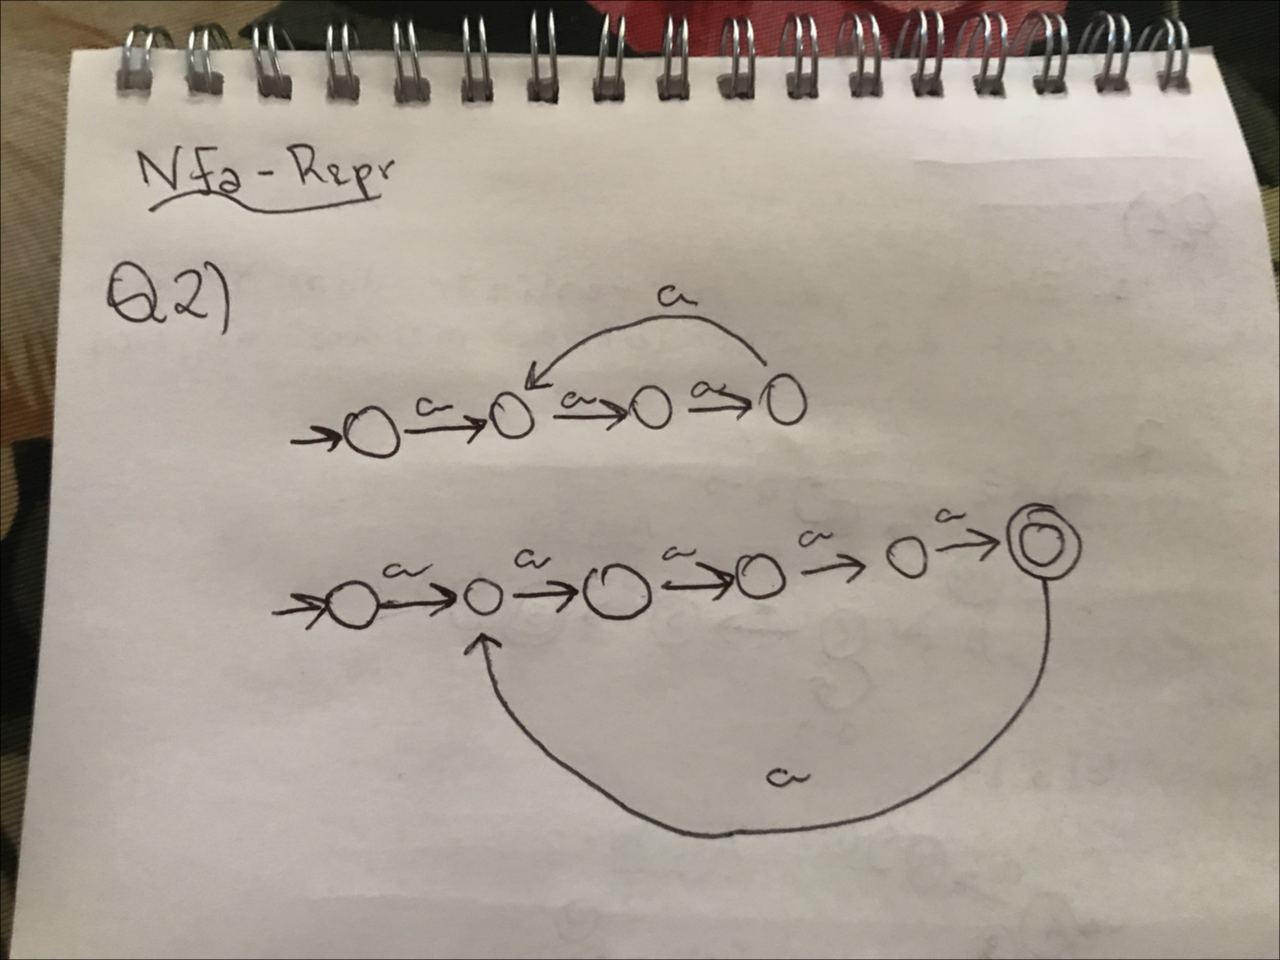 Nfa-Repr
Q2)
a
a a a
a a a a a
a